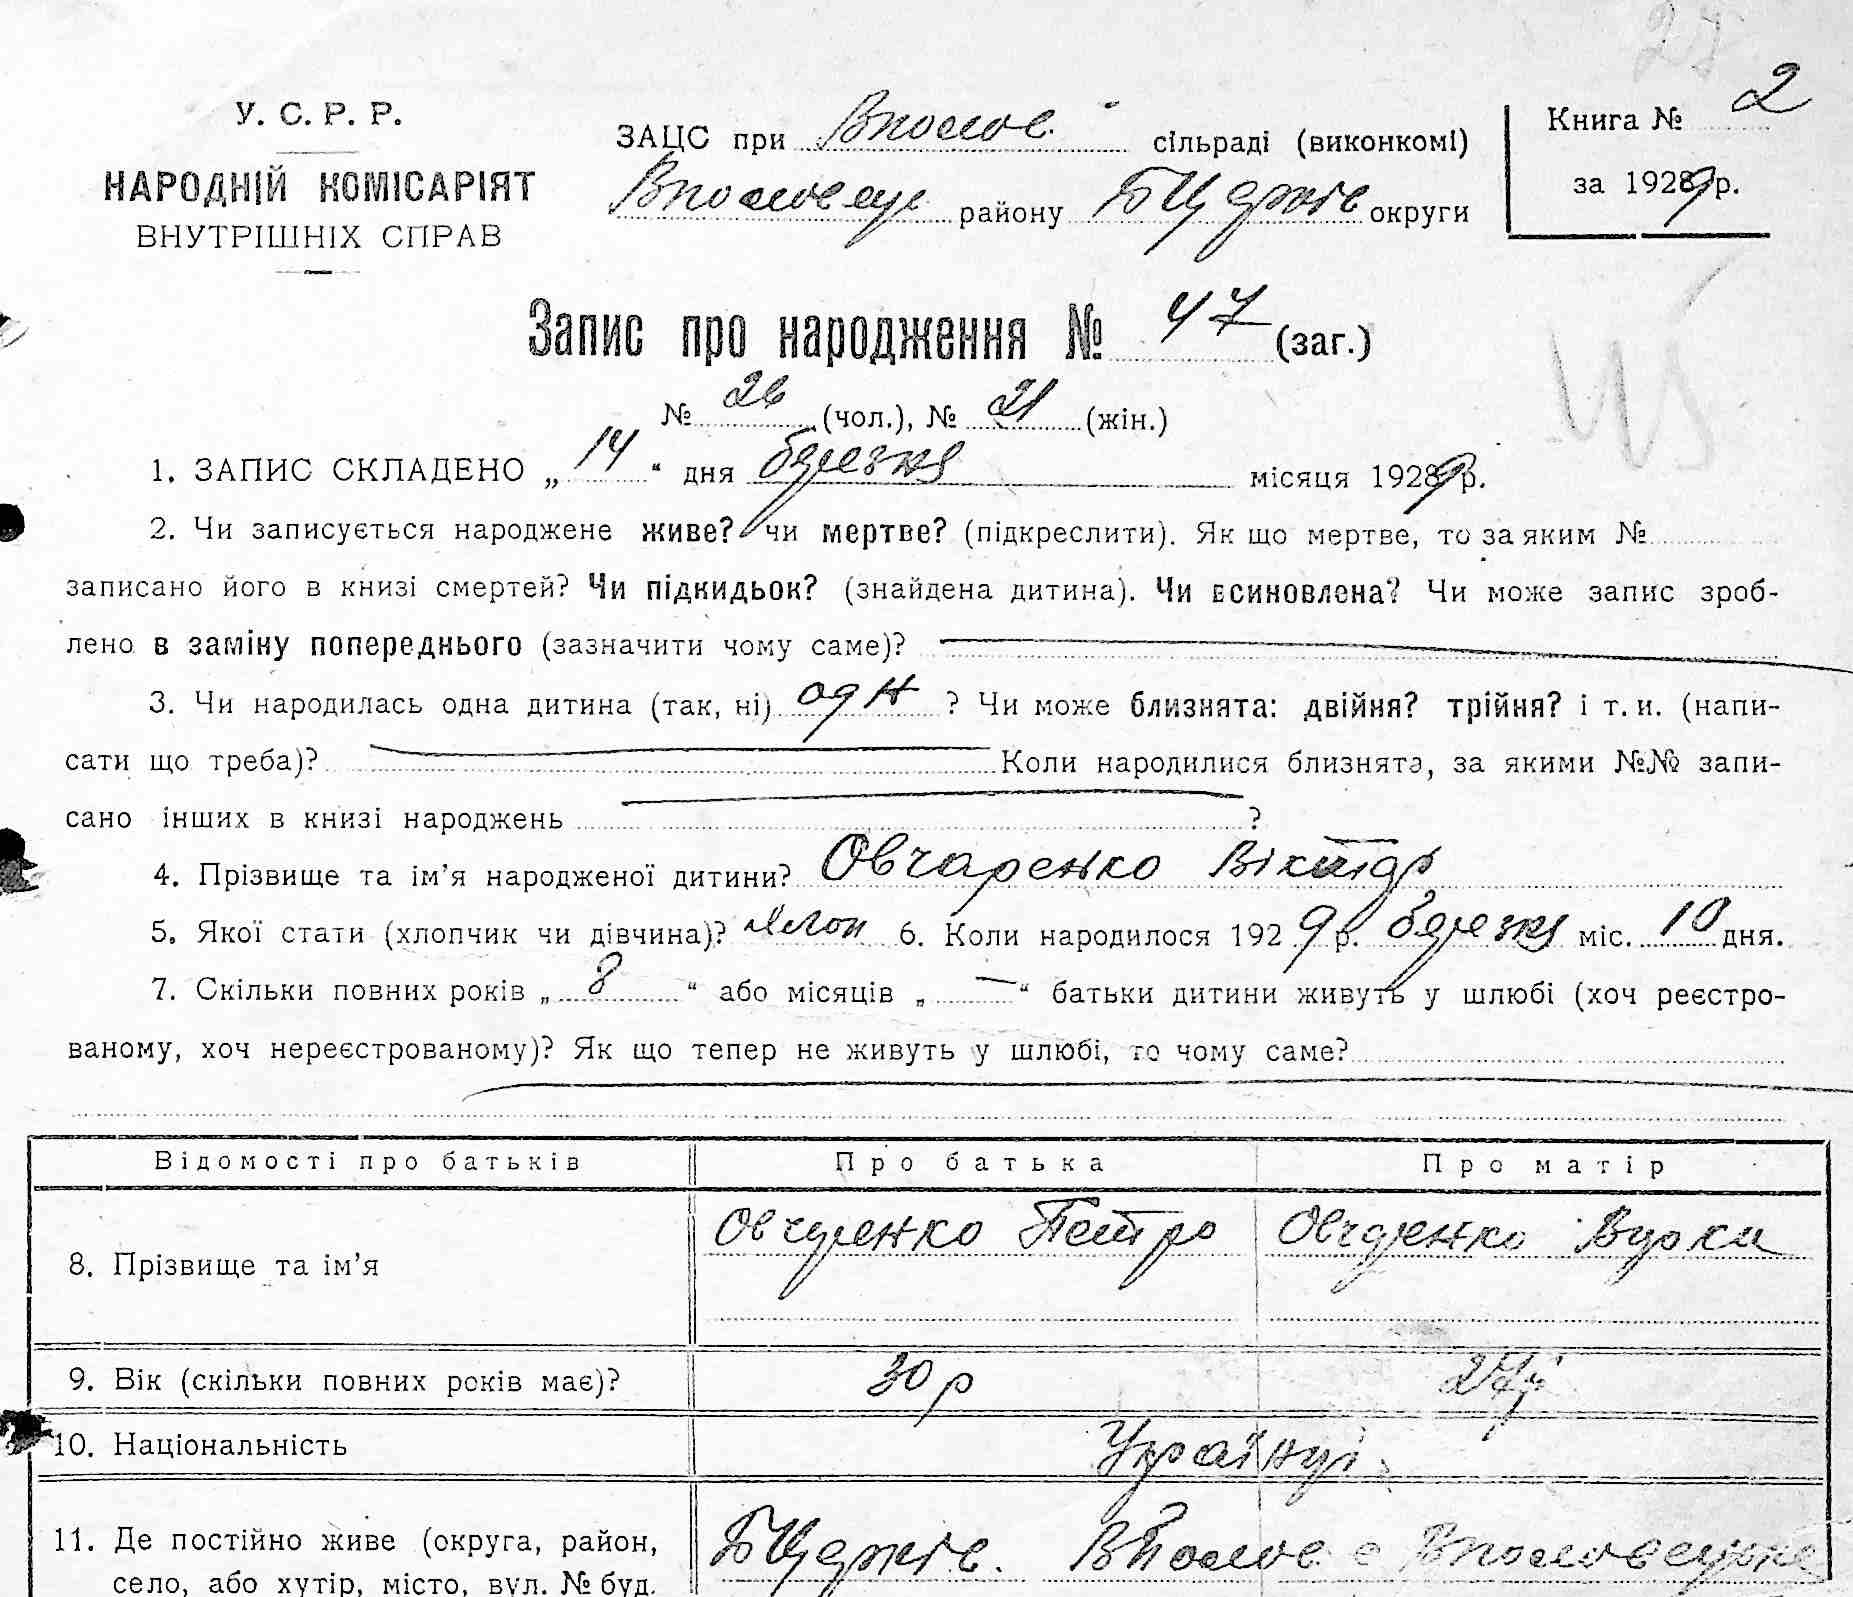 У. С. Р. Р.
НАРОДНІЙ КОМІСАРІЯТ
ВНУТРІШНІХ СПРАВ
ЗАЦС при Вполов. сільраді (виконкомі)
району БЦерків округи
Книга № 2
за 1929 р.
Запис про народження № 47 (заг.)
№ 26 (чол.), № 21 (жін.)
1. ЗАПИС СКЛАДЕНО „ 14 “ дня березня місяця 1929 р.
2. Чи записується народжене живе? чи мертве? (підкреслити). Як що мертве, то за яким №
записано його в книзі смертей? Чи підкидьок? (знайдена дитина). Чи всиновлена? Чи може запис зроб-
лено в заміну попереднього (зазначити чому саме)?
3. Чи народилась одна дитина (так, ні) одн ? Чи може близнята: двійня? трійня? і т. и. (напи-
сати що треба)? Коли народилися близнята, за якими №№ запи-
сано інших в книзі народжень ?
4. Прізвище та ім’я народженої дитини? Овчаренко Віктор
5. Якої стати (хлопчик чи дівчина)? хлоп 6. Коли народилося 1929 р. березня міс. 10 дня.
7. Скільки повних років „ 8 “ або місяців „ — “ батьки дитини живуть у шлюбі (хоч реєстро-
ваному, хоч нереєстрованому)? Як що тепер не живуть у шлюбі, то чому саме?
Відомості про батьків Про батька Про матір
8. Прізвище та ім’я Овчаренко Петро Овчаренко
9. Вік (скільки повних років має)? 30 р 27 р
10. Національність Українці
11. Де постійно живе (округа, район, БЦерків. ВПолов с
село, або хутір, місто, вул. № буд.